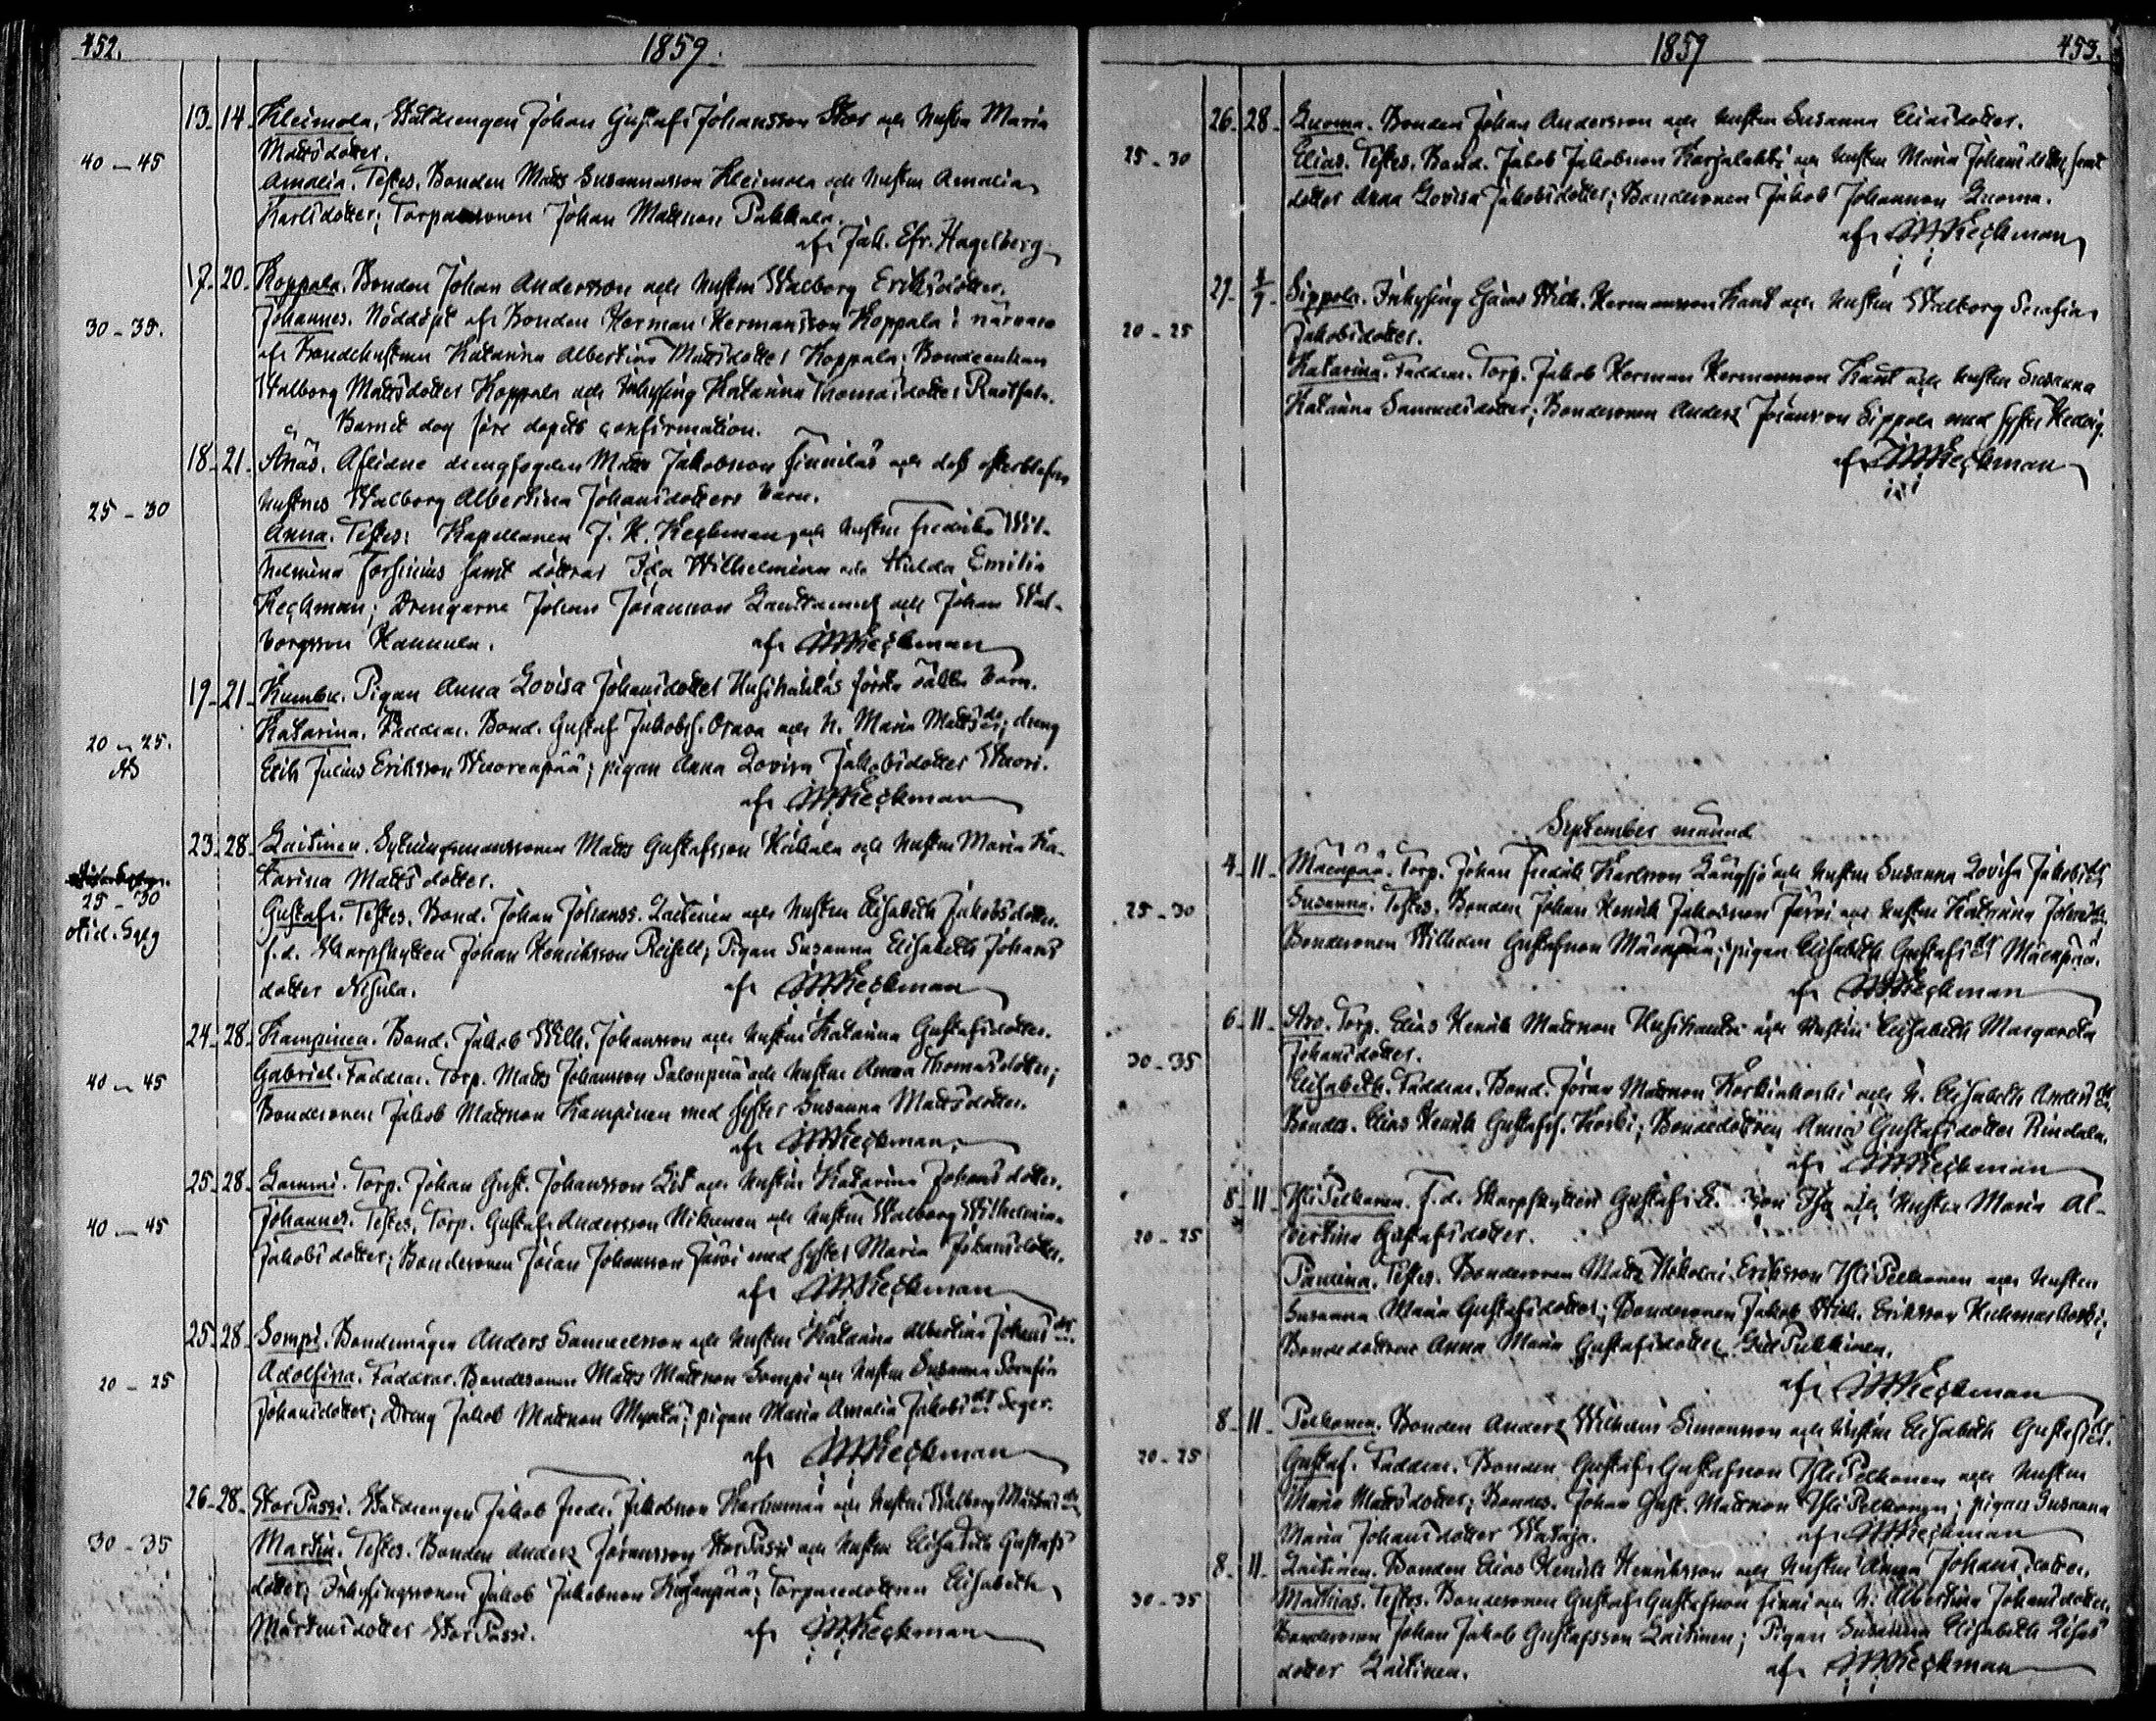 452. 1859.
13. 14. Kleimola. Statdrengen Johan Gustaf Johansson Stor och hustru Maria
Mattsdotter.
40 - 45
Amalia. Testes. Bonden Matts Susannasson Kleimola och hustru Amalia
Karlsdotter; Torparesonen Johan Mattsson Pukkala.
af Jak. Efr. Hagelberg.
17. 20. Koppala. Bonden Johan Andersson och hustru Walborg Eriksdotter.
30 - 35.
Johannes. Nöddöpt af Bonden Herman Hermansson Koppala i närvaro
af Bondehustrun Katarina Albertina Mattsdotter Koppala; Bondeenkan
Walborg Mattsdotter Koppala och Inhysing Katarina Thomasdotter
Barnet dog före dopets confirmation.
18. 21. Ånäs. Aflidne drengfogden Matts Jakobsson Finnilas och dess efterblefna
hustrus Walborg Albertina Johansdotters barn.
25 - 30
Anna. Testes: Kapellanen J. H. Keckman och hustru Fredrika Wil-
helmina Forsinius samt döttrar Ida Wilhelmina och Hulda Emilia
Keckman; Drengarne Johan Johansson och Johan Wal-
borgsson Kannula. af JHKeckman
19. 21. Kumbu. Pigan Anna Lovisa Johansdotter Husikaitas förta oälta barn.
Katarina. Faddrar. Bond. Gustaf Jakobss. Orava och H. Maria Mattsdr; dreng
20 - 25.
Erik Julius Eriksson Wuorenpää; pigan Anna Lovisa Jakobsdotter Wuori.
af JHKeckman
23. 28. Laitinen. Sytningsmanssonen Matts Gustafsson Hakala och hustru Maria Ka-
tarina Mattsdotter.
25 - 30
Gustaf. Testes. Bond. Johan Johanss. Laitinen och hustru Elisabeth Jakobsdotter.
f.d. Skarpskytten Johan Henriksson; Pigan Susanna Elisabeth Johans
dotter Nisula. af JHKeckman
24. 28. Kampinen. Bond. Jakob Wilh. Johansson och hustru Katarina Gustafsdotter.
40 - 45
Gabriel. Faddrar. Torp. Matts Johansson Salonpää och hustru Anna Thomasdotter;
Bondesonen Jakob Mattsson Kampinen med syster Susanna Mattsdotter.
af JHKeckman
25. 28. Lammi. Torp. Johan Gust. Johansson och hustru Katarina Johansdotter.
Johannes. Testes. Torp. Gustaf Andersson Nikunen och hustru Walborg Wilhelmina
40 - 45
Jakobsdotter; Bondesonen Johan Johansson Järvi med syster Maria Johansdotter.
af JHKeckman
25. 28. Sompi. Bondemågen Anders Samuelsson och hustru Katarina Albertina Johansdr.
20 - 25
Adolfina. Faddrar. Bondesonen Matts Mattsson Sompi och hustru Susanna Serafia
Johansdotter; Dreng Jakob Mattsson; pigan Maria Amalia Jakobsdr Seger.
af JHKeckman
26. 28. Stor Passi. Statdrengen Jakob Fredr. Jakobsson Karhumaa och hustru Walborg
30 - 35
Martin. Testes. Bonden Anders Jöransson Stor Passi och hustru Elisabeth Gustafs
dotter; Inhysingssonen Jakob Jakobsson; Torparedottren Elisabeth
Mårtensdotter Stor Passi. af JHKeckman
1859 453.
26. 28. Luoma. Bonden Johan Andersson och hustru Susanna Eliasdotter.
25 - 30
Elias. Testes. Bond. Jakob Jakobsson Karjalahti och hustru Maria Johansdotter samt
dotter Anna Lovisa Jakobsdotter; Bondesonen Jakob Johansson Luoma.
af JHKeckman
29. 4/9. Sippola. Inhysing Wilh. Hermansson Kant och hustru Walborg Serafia
20 - 25
Jakobsdotter.
Katarina. Faddrar. Torp. Jakob Herman Hermansson Kant och hustru Susanna
Katarina Samuelsdotter; Bondesonen Anders Johansson Sippola med syster Hedvig.
af JHKeckman
September månad
4. 11. Mäenpää. Torp. Johan Fredrik Karlsson Långsjö och hustru Susanna Lovisa Jakobsdr
25 - 30
Susanna. Testes. Bonden Johan Henrik Jakobsson Järvi och hustru Katarina
Bondesonen Wilhelm Gustafsson Mäenpää; pigan Elisabeth Gustafsdr Mäenpää.
af JHKeckman
6. 11. Aro. Torp. Elias Henrik Mattsson och hustru Elisabeth Margareta
Johansdotter.
30 - 35
Elisabeth. Faddrar. Bond. Jöran Mattsson Koskinkoski och H. Elisabeth
Bondes. Elias Henrik Gustafss. Koski; Bondedottren Anna Gustafsdotter Rindala.
af JHKeckman
8. 11. Yli Pelkonen. F. d. Skarpskytten Gustaf och hustru Maria Al-
20 - 25
bertina Gustafsdotter.
Paulina. Testes. Bondesonen Matts Nikolai Eriksson Yli Pelkonen och hustru
Susanna Maria Gustafsdotter; Bondesonen Jakob Wilh. Eriksson
Bondedottren Anna Maria Gustafsdotter Pukkinen.
af JHKeckman
8. 11. Pelkonen. Bonden Anders Wilhelm Simonsson och hustru Elisabeth Gustafsdr.
20 - 25
Gustaf. Faddrar. Bonden Gustaf Gustafsson Yli Pelkonen och hustru
Maria Mattsdotter; Bondes. Johan Gust. Mattsson Yli Pelkonen; pigan Susanna
Maria Johansdotter Wataja. af JHKeckman
8. 11. Laitinen. Bonden Elias Henrik Henriksson och hustru Anna Johansdotter.
30 - 35
Matthias. Testes. Bondesonen Gustaf Gustafsson Finni och H. Albertina Johansdotter.
Bondesonen Johan Jakob Gustafsson Laitinen; Pigan Susanna Elisabeth
dotter Laitinen. af JHKeckman